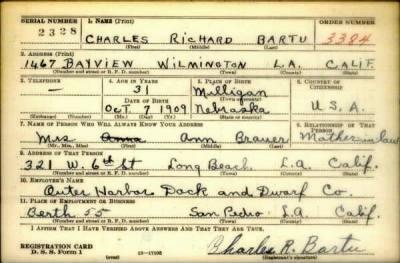 SERIAL NUMBER 1. NAME (Print) ORDER NUMBER
2328 CHARLES RICHARD BARTU 3384
(First) (Middle) (Last)
2. ADDRESS (Print)
1467 BAYVIEW WILMINGTON L.A. CALIF.
(Number and street or R. F. D. number) (Town) (County) (State)
3. TELEPHONE 4. AGE IN YEARS 5. PLACE OF BIRTH 6. COUNTRY OF CITIZENSHIP
— 31 Milligan
DATE OF BIRTH (Town or county)
Oct 7 1909 Nebraska U.S.A.
(Exchange) (Number) (Mo.) (Day) (Yr.) (State or country)
7. NAME OF PERSON WHO WILL ALWAYS KNOW YOUR ADDRESS 8. RELATIONSHIP OF THAT PERSON
Mrs Anna Ann Brauer Mother in law
(Mr., Mrs., Miss) (First) (Middle) (Last)
9. ADDRESS OF THAT PERSON
321 W. 6th St Long Beach L.A. Calif.
(Number and street or R. F. D. number) (Town) (County) (State)
10. EMPLOYER'S NAME
Outer Harbor Dock and Dwarf Co.
11. PLACE OF EMPLOYMENT OR BUSINESS
Berth 55 San Pedro L.A. Calif.
(Number and street or R. F. D. number) (Town) (County) (State)
I AFFIRM THAT I HAVE VERIFIED ABOVE ANSWERS AND THAT THEY ARE TRUE.
REGISTRATION CARD
D. S. S. Form 1 (over) Charles R. Bartu
(Registrant's signature)